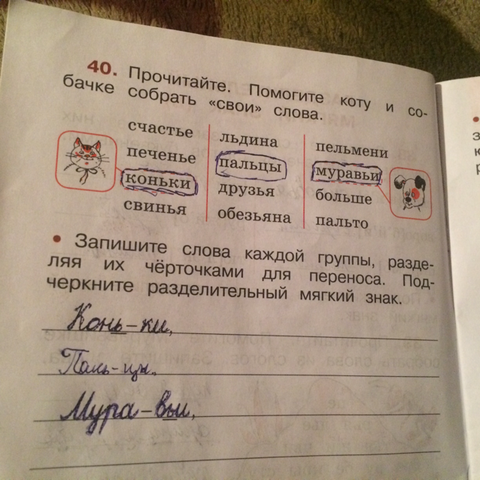 40. Прочитайте. Помогите коту и со-
бачке собрать «свои» слова.
счастье
печенье
коньки
свинья
льдина
пальцы
друзья
обезьяна
пельмени
муравьи
больше
пальто
• Запишите слова каждой группы, разде-
ляя их чёрточками для переноса. Под-
черкните разделительный мягкий знак.
Конь-ки,
Паль-цы.
Мура-вьи,